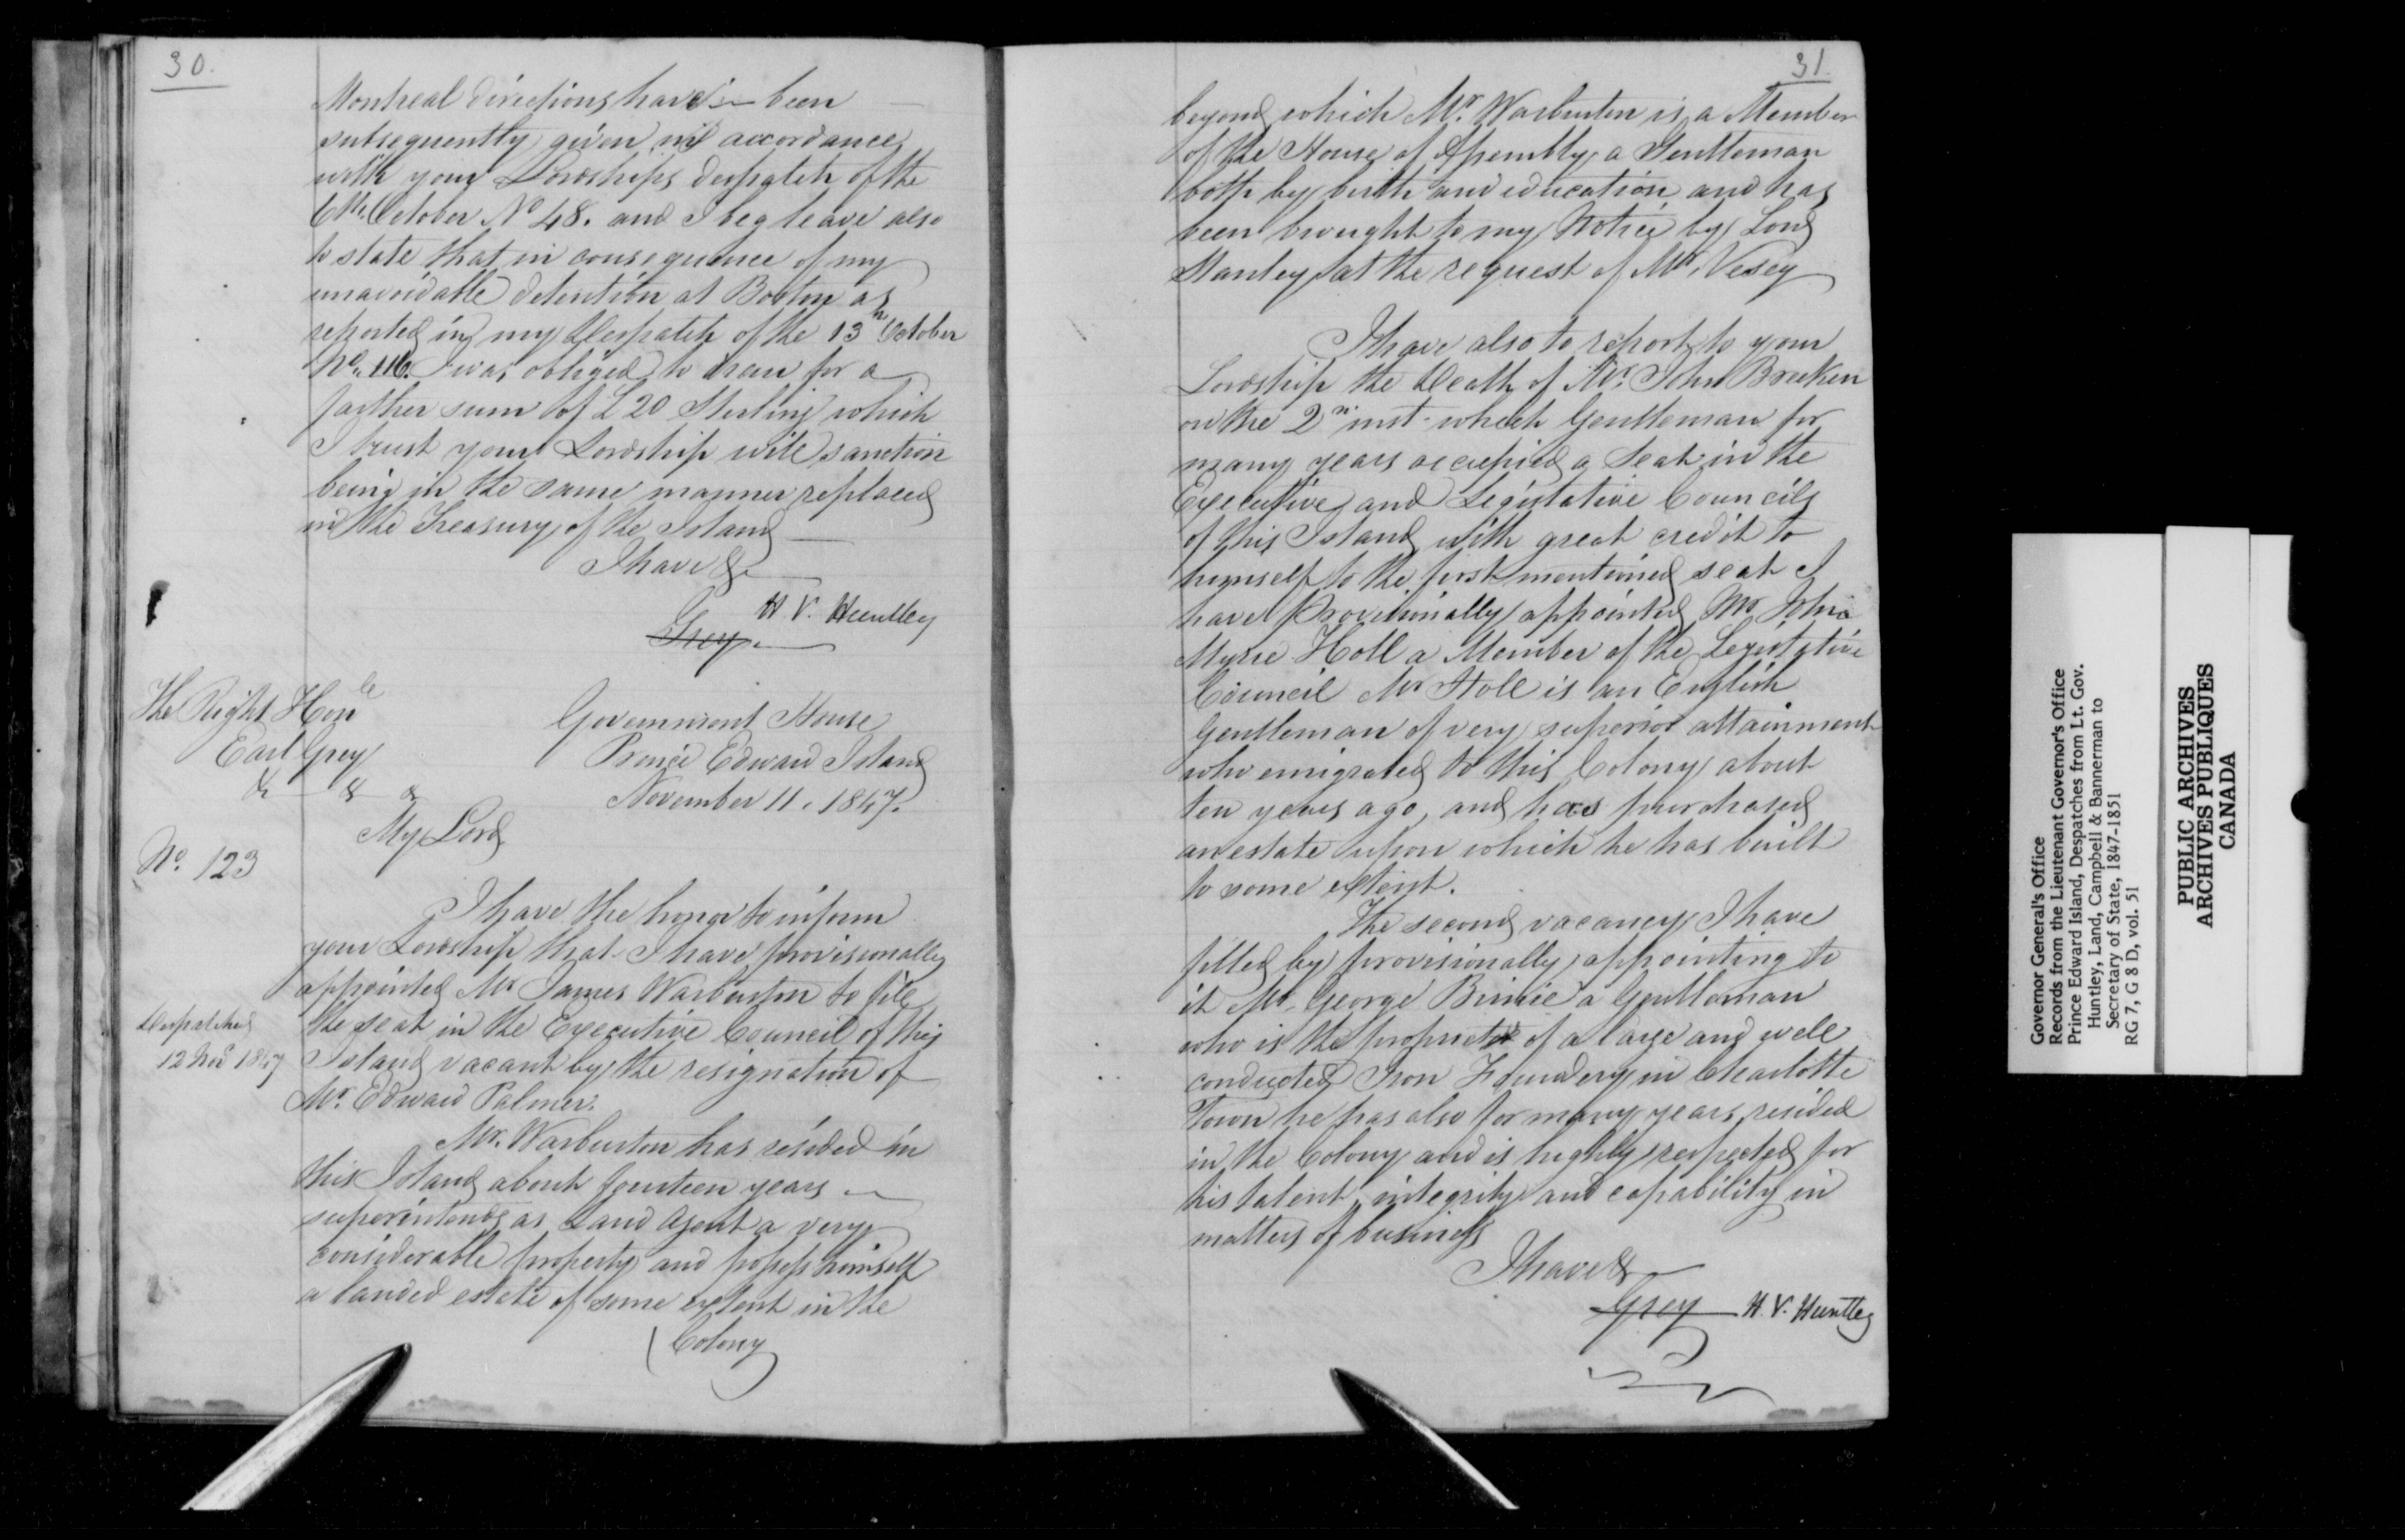 30.
Montreal directions have been
subsequently given in accordance
with your Lordships despatch of the
6th October No 48. and I beg leave also
to state that in consequence of my
unavoidable detention at Boston as
reported in my Despatch of the 13th October
No. 116. I was obliged to draw for a
farther sum of £20 Sterling which
I trust your Lordship will sanction
being in the same manner replaced
in the Treasury of the Island
I have &c
H. V. Huntley
Grey
The Right Honle
Earl Grey
& & &
Government House
Prince Edward Island
November 11. 1847.
My Lord
No. 123
I have the honor to inform
your Lordship that I have provisionally
appointed Mr James Warburton to fill
the seat in the Executive Council of this
Island vacant by the resignation of
Mr. Edward Palmer.
Despatched
12 Nov 1847
Mr. Warburton has resided in
this Island about fourteen years
superintends as Land Agent a very
considerable property and possess himself
a landed estate of some extent in the
Colony
31.
beyond which Mr. Warburton is a Member
of the House of Assembly, a Gentleman
both by birth and education and has
been brought to my Notice by Lord
Stanley at the request of Mr. Vesey
I have also to report to your
Lordship the Death of Mr. John Brecken
on the 2n inst. which Gentleman for
many years occupied a Seat in the
Executive and Legislative Councils
of this Island with great credit to
himself to the first mentioned seat I
have Provisionally appointed Mr John
Myrie Holl a Member of the Legislative
Council Mr Holl is an English
Gentleman of very superior attainment
who emigrated to this Colony about
ten years ago, and has purchased
an estate upon which he has built
to some extent.
The second vacancy I have
filled by provisionally appointing to
it Mr. George Birnie a Gentleman
who is the proprietor of a large and well
conducted Iron Foundery in Charlotte
Town he has also for many years resided
in the Colony and is highly respected for
his talent, integrity and capability in
matters of business
I have &
Grey H. V. Huntley
Governor General's Office
Records from the Lieutenant Governor's Office
Prince Edward Island, Despatches from Lt. Gov.
Huntley, Land, Campbell & Bannerman to
Secretary of State, 1847-1851
RG 7, G 8 D, vol. 51
PUBLIC ARCHIVES
ARCHIVES PUBLIQUES
CANADA